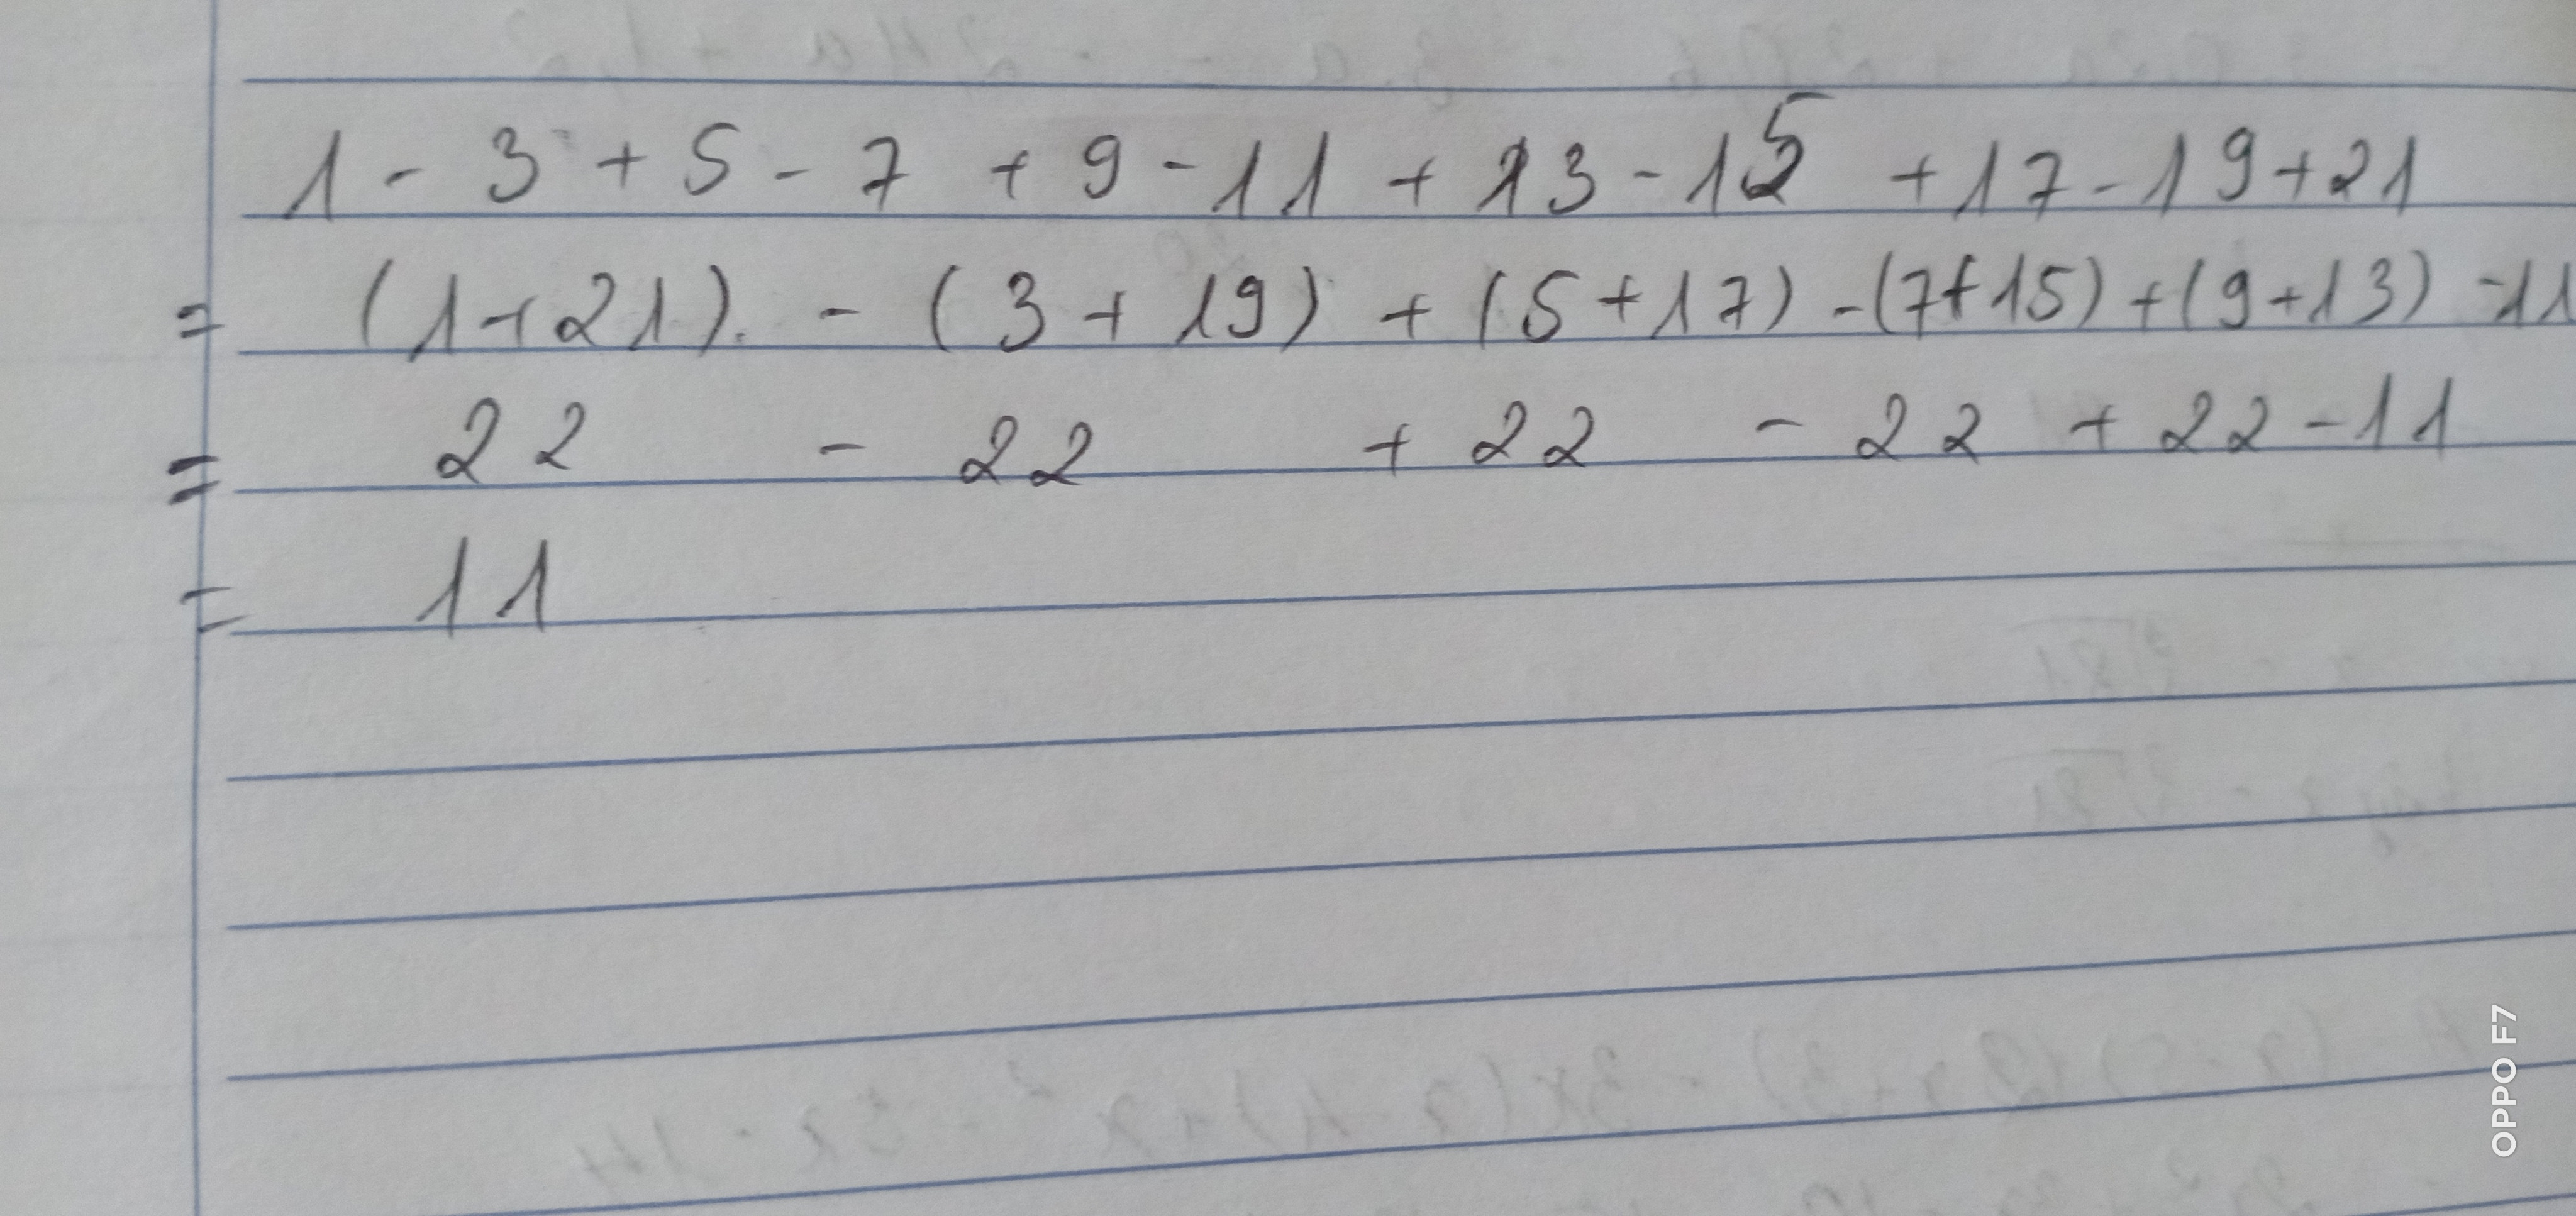 1 - 3 + 5 - 7 + 9 - 11 + 13 - 15 + 17 - 19 + 21
= (1 + 21) - (3 + 19) + (5 + 17) - (7 + 15) + (9 + 13) - 11
= 22 - 22 + 22 - 22 + 22 - 11
= 11
OPPO F7